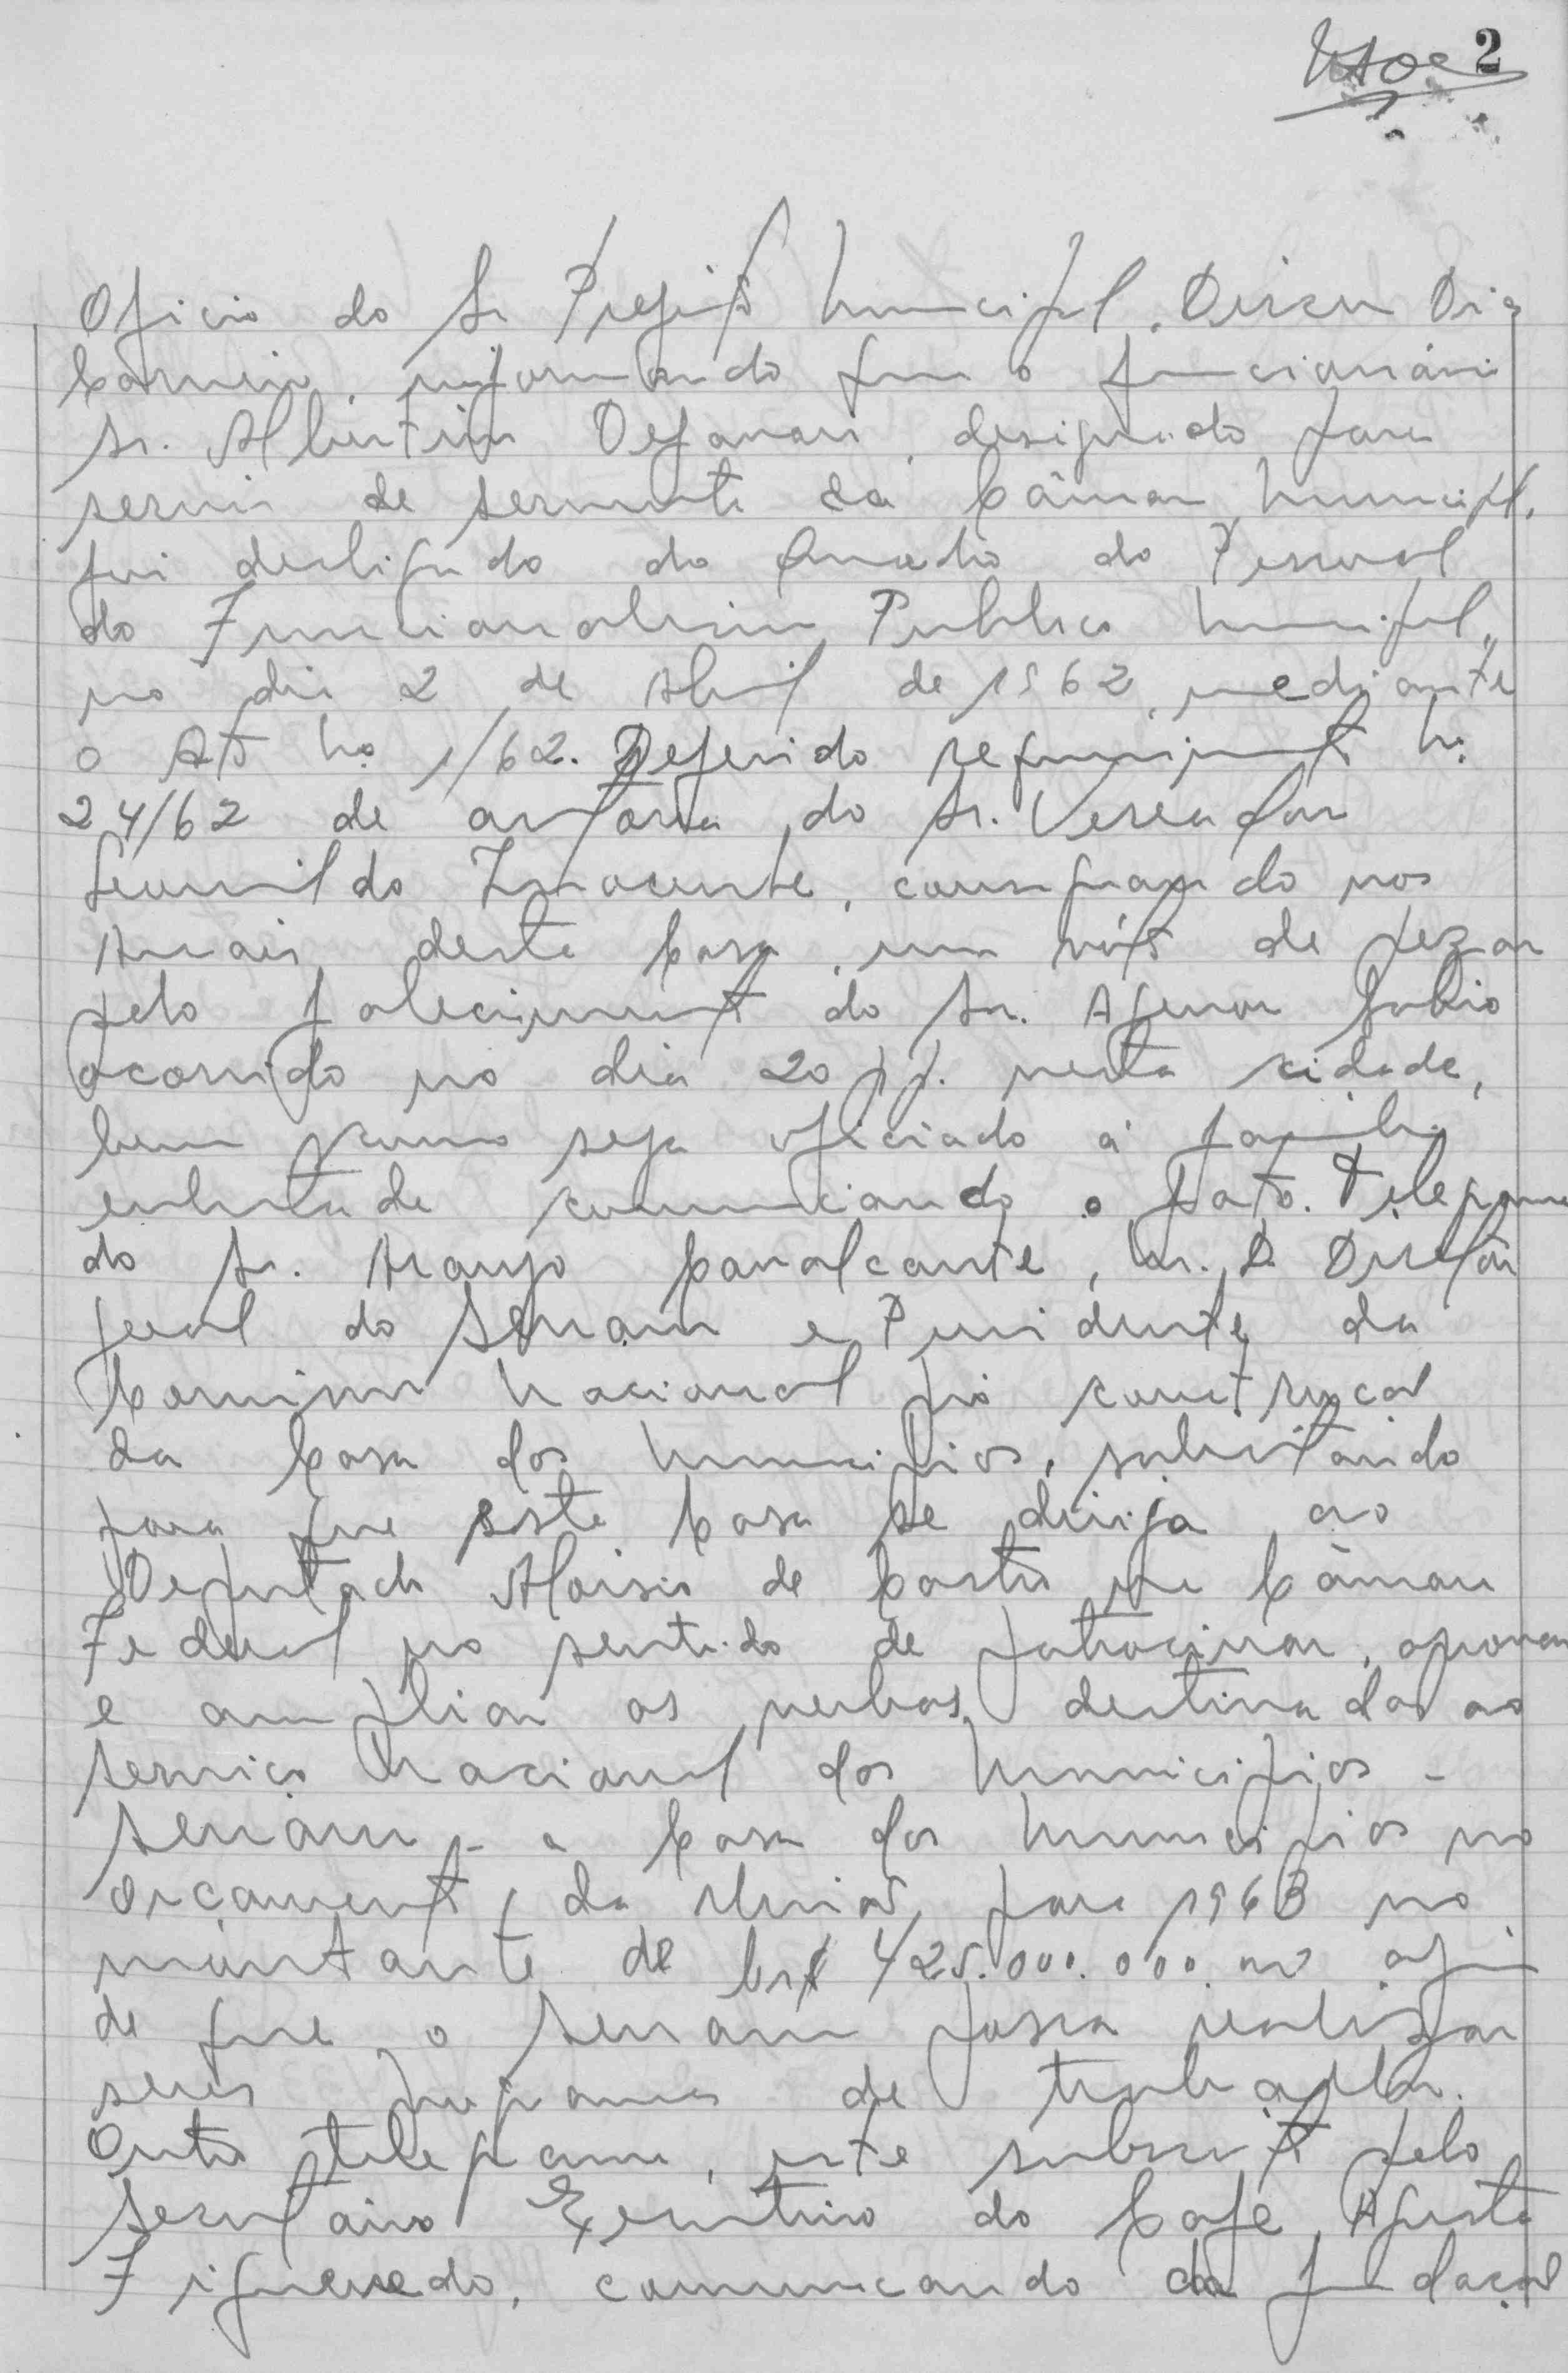 2
Oficio do Sr Prefeito Municipal, Dirceu Dias
Carneiro, informando que o funcionário
Sr. Albertino Defanari, designado para
servir de servente da Câmara Municipal,
foi desligado do Quadro do Pessoal
do Funcionalismo Publico Municipal,
no dia 2 de Abril de 1962, mediante
o Ato No 1/62. Deferido requerimento No
24/62 de autoria do Sr. Vereador
Leonildo Inocente, consignando nos
Anais desta Casa, um voto de pezar
pelo falecimento do Sr. Agenor
ocorrido no dia 20 pp. nesta cidade,
bem como seja oficiado à familia
enlutada comunicando o fato. Telegrama
do Sr. Araujo Cavalcante, M. D. Diretor
geral do Senam e Presidente da
Comissão Nacional pró construção
da Casa dos Municipios, solicitando
para que esta Casa se dirija ao
Deputado Aloisio de Castro na Câmara
Federal no sentido de patrocinar, aprovar
e ampliar as verbas destinadas ao
serviço Nacional dos Municipios -
Senam - e Casa dos Municipios no
orçamento da União para 1963 no
montante de Cr$ 425.000.000,00 afim
de que o Senam possa realizar
seus programas de trabalho.
Outro telegrama, este subscrito pelo
Secretário Executivo do Café, Agusto
Figueredo, comunicando da fundação